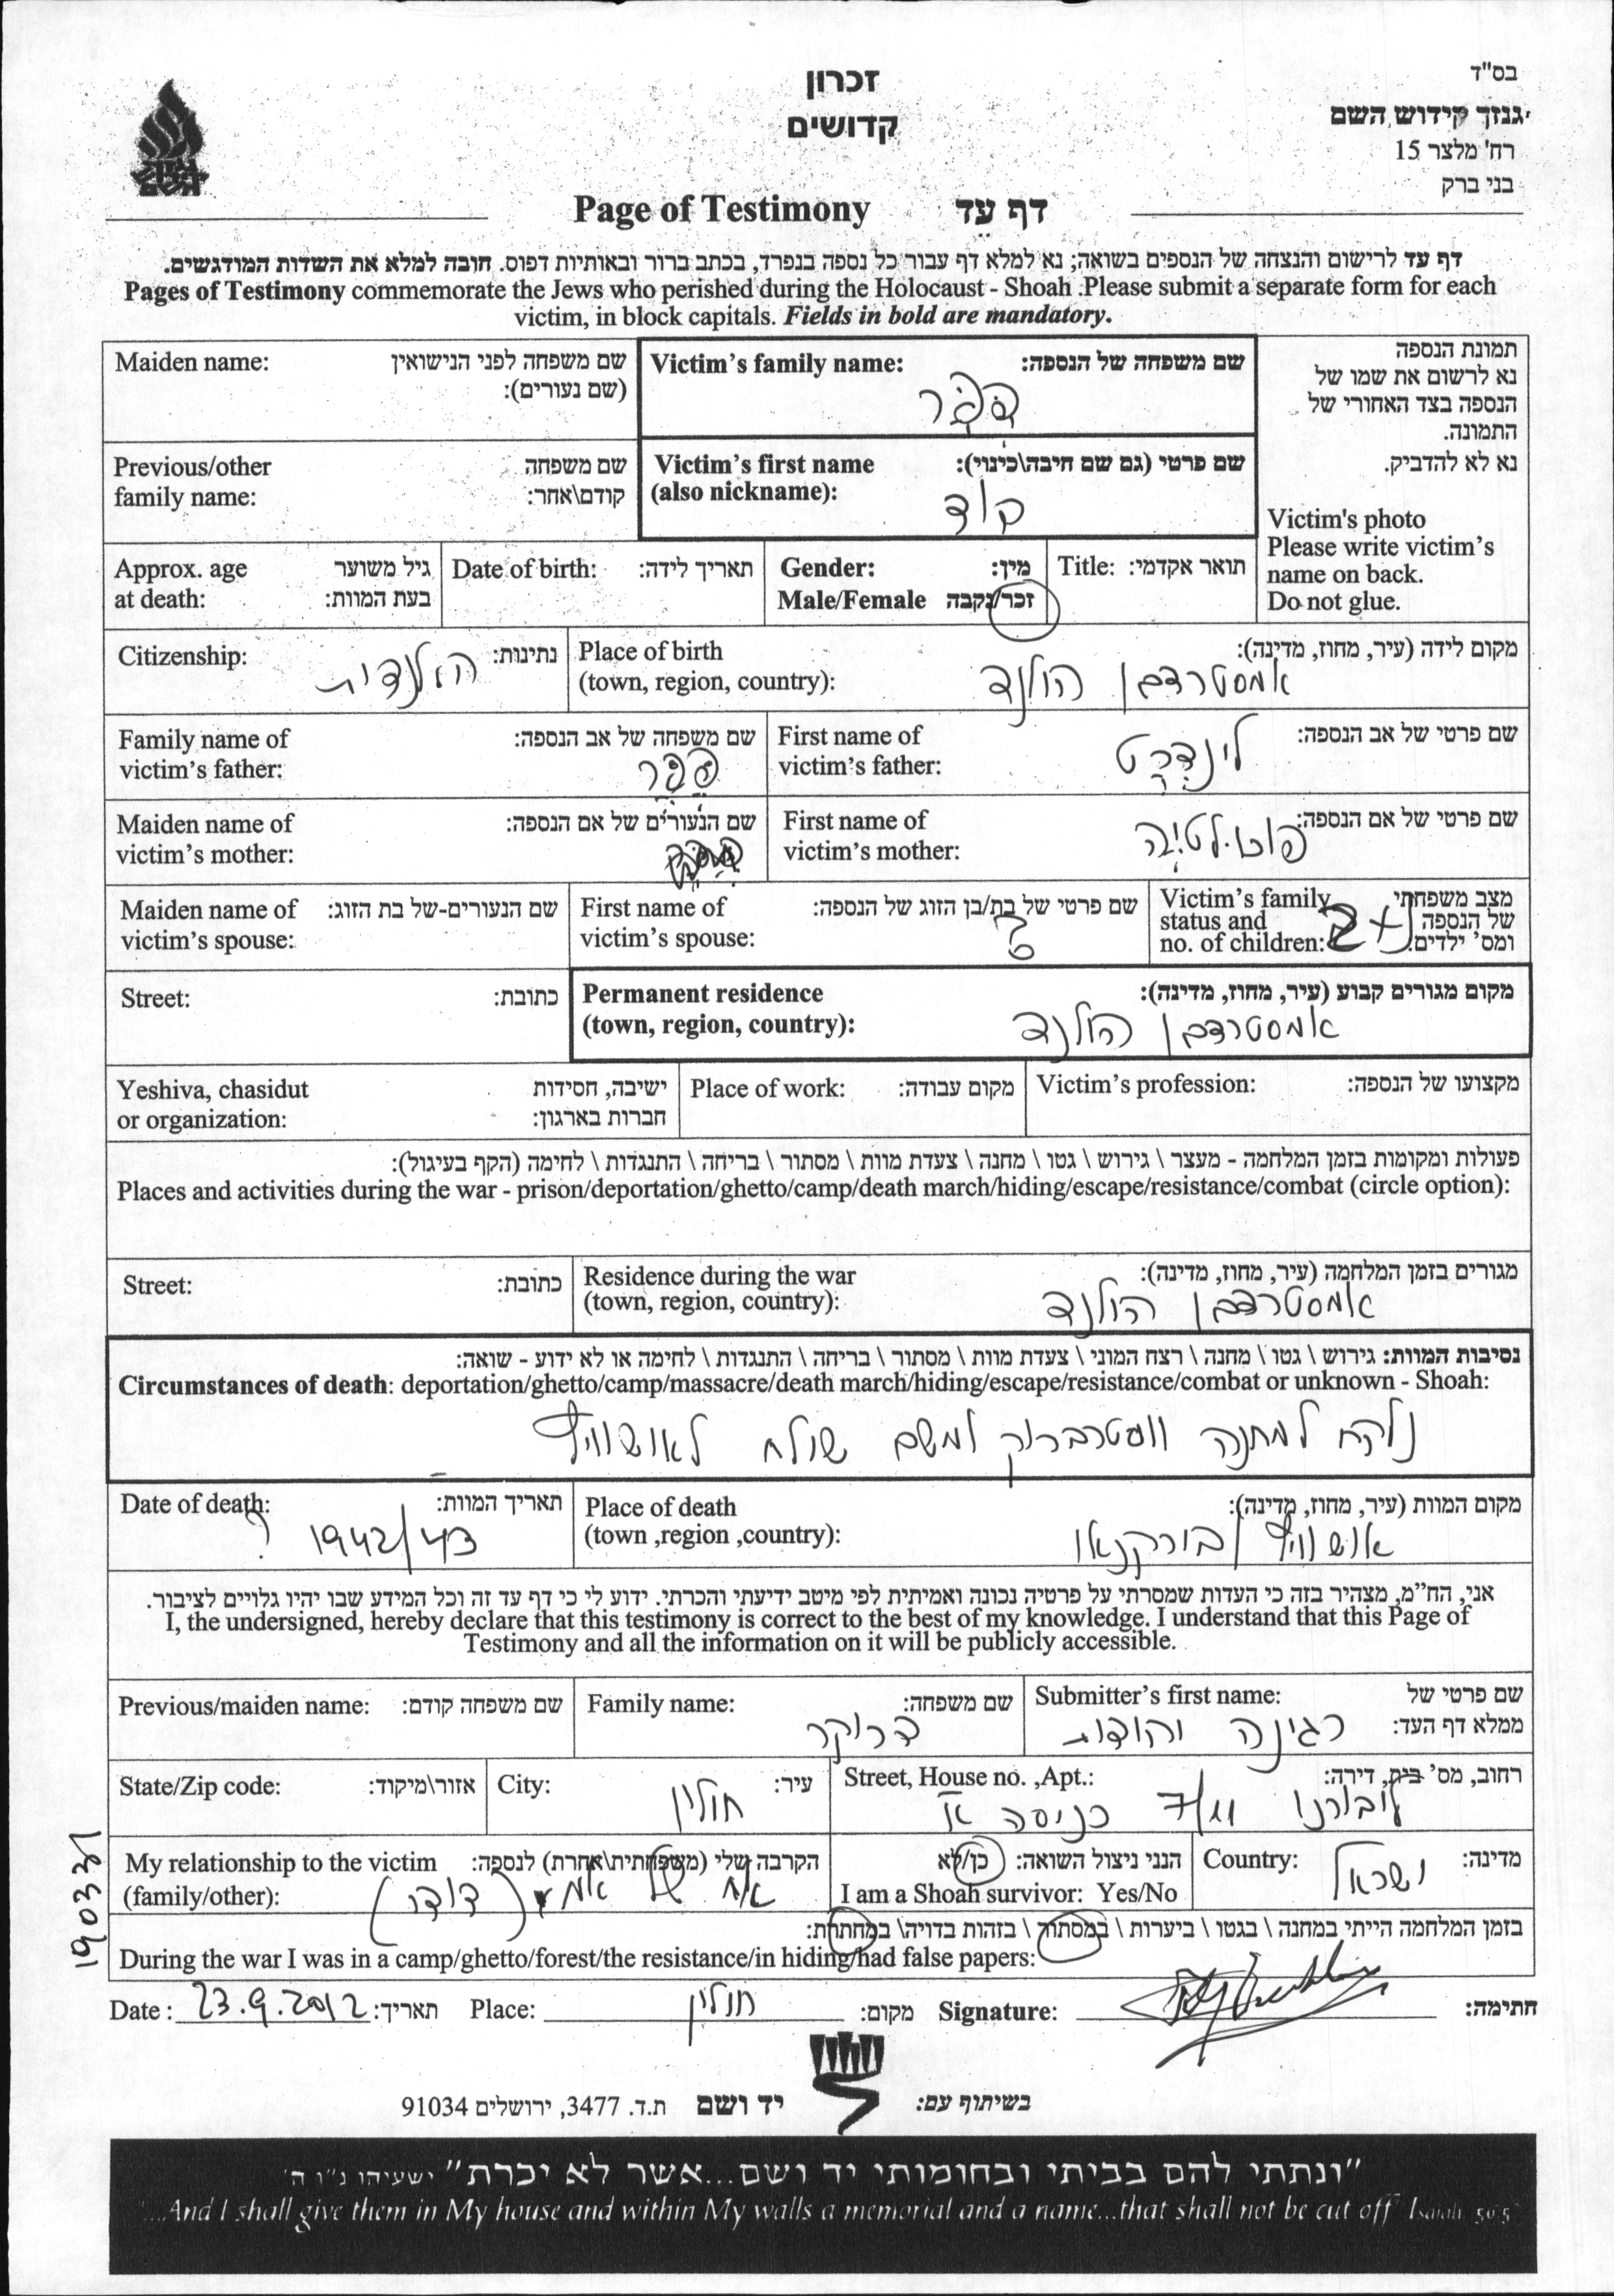 בס"ד
גנזך קידוש השם
רח' מלצר 15
בני ברק
זכרון
קדושים
Page of Testimony דף עֵד
דף עד לרישום והנצחה של הנספים בשואה; נא למלא דף עבור כל נספה בנפרד, בכתב ברור ובאותיות דפוס. חובה למלא את השדות המודגשים.
Pages of Testimony commemorate the Jews who perished during the Holocaust - Shoah .Please submit a separate form for each
victim, in block capitals. Fields in bold are mandatory.
תמונת הנספה
נא לרשום את שמו של
הנספה בצד האחורי של
התמונה.
נא לא להדביק.
Victim's photo
Please write victim's
name on back.
Do not glue.
Victim's family name: שם משפחה של הנספה:
פפר
Maiden name: שם משפחה לפני הנישואין
(שם נעורים):
Victim's first name שם פרטי (גם שם חיבה\כינוי):
(also nickname):
Previous/other שם משפחה
family name: קודם\אחר:
Title: תואר אקדמי:
Gender: מין:
Male/Female זכר/נקבה
Date of birth: תאריך לידה:
Approx. age גיל משוער
at death: בעת המוות:
Place of birth מקום לידה (עיר, מחוז, מדינה):
(town, region, country): אמסטרדם הולנד
Citizenship: נתינות: הולנדית
First name of שם פרטי של אב הנספה:
victim's father:
Family name of שם משפחה של אב הנספה:
victim's father: פפר
First name of שם פרטי של אם הנספה:
victim's mother:
Maiden name of שם הנעורים של אם הנספה:
victim's mother:
Victim's family מצב משפחתי
status and של הנספה
no. of children: ומס' ילדים:
נ+2
First name of שם פרטי של בת/בן הזוג של הנספה:
victim's spouse: ?
Maiden name of שם הנעורים-של בת הזוג:
victim's spouse:
Permanent residence מקום מגורים קבוע (עיר, מחוז, מדינה):
(town, region, country): אמסטרדם הולנד
Street: כתובת:
Victim's profession: מקצועו של הנספה:
Place of work: מקום עבודה:
Yeshiva, chasidut ישיבה, חסידות
or organization: חברות בארגון:
פעולות ומקומות בזמן המלחמה - מעצר \ גירוש \ גטו \ מחנה \ צעדת מוות \ מסתור \ בריחה \ התנגדות \ לחימה (הקף בעיגול):
Places and activities during the war - prison/deportation/ghetto/camp/death march/hiding/escape/resistance/combat (circle option):
Residence during the war מגורים בזמן המלחמה (עיר, מחוז, מדינה):
(town, region, country): אמסטרדם הולנד
Street: כתובת:
נסיבות המוות: גירוש \ גטו \ מחנה \ רצח המוני \ צעדת מוות \ מסתור \ בריחה \ התנגדות \ לחימה או לא ידוע - שואה:
Circumstances of death: deportation/ghetto/camp/massacre/death march/hiding/escape/resistance/combat or unknown - Shoah:
נלקח למחנה ווסטרברוק ומשם שולח לאושוויץ
Place of death מקום המוות (עיר, מחוז, מדינה):
(town ,region ,country): אושוויץ בורקנאו
Date of death: תאריך המוות:
? 1942/43
אני, הח"מ, מצהיר בזה כי העדות שמסרתי על פרטיה נכונה ואמיתית לפי מיטב ידיעתי והכרתי. ידוע לי כי דף עד זה וכל המידע שבו יהיו גלויים לציבור.
I, the undersigned, hereby declare that this testimony is correct to the best of my knowledge. I understand that this Page of
Testimony and all the information on it will be publicly accessible.
Submitter's first name: שם פרטי של
ממלא דף העד: רגינה יהודית
Family name: שם משפחה:
דרוקר
Previous/maiden name: שם משפחה קודם:
Street, House no. ,Apt.: רחוב, מס' בית, דירה:
7/11 כניסה א
City: עיר:
חולון
State/Zip code: אזור\מיקוד:
Country: מדינה:
ישראל
הנני ניצול השואה: כן/לא
I am a Shoah survivor: Yes/No
My relationship to the victim הקרבה שלי (משפחתית\אחרת) לנספה:
(family/other): אח של אמי (דודי)
בזמן המלחמה הייתי במחנה \ בגטו \ ביערות \ במסתור \ בזהות בדויה\ במחתרת:
During the war I was in a camp/ghetto/forest/the resistance/in hiding/had false papers:
Date : 23.9.2012 תאריך: Place: חולון מקום: Signature: חתימה:
190337
בשיתוף עם: יד ושם ת.ד. 3477, ירושלים 91034
"ונתתי להם בביתי ובחומותי יד ושם...אשר לא יכרת" ישעיהו נ"ו ה'
"...And I shall give them in My house and within My walls a memorial and a name...that shall not be cut off" Isaiah 56:5